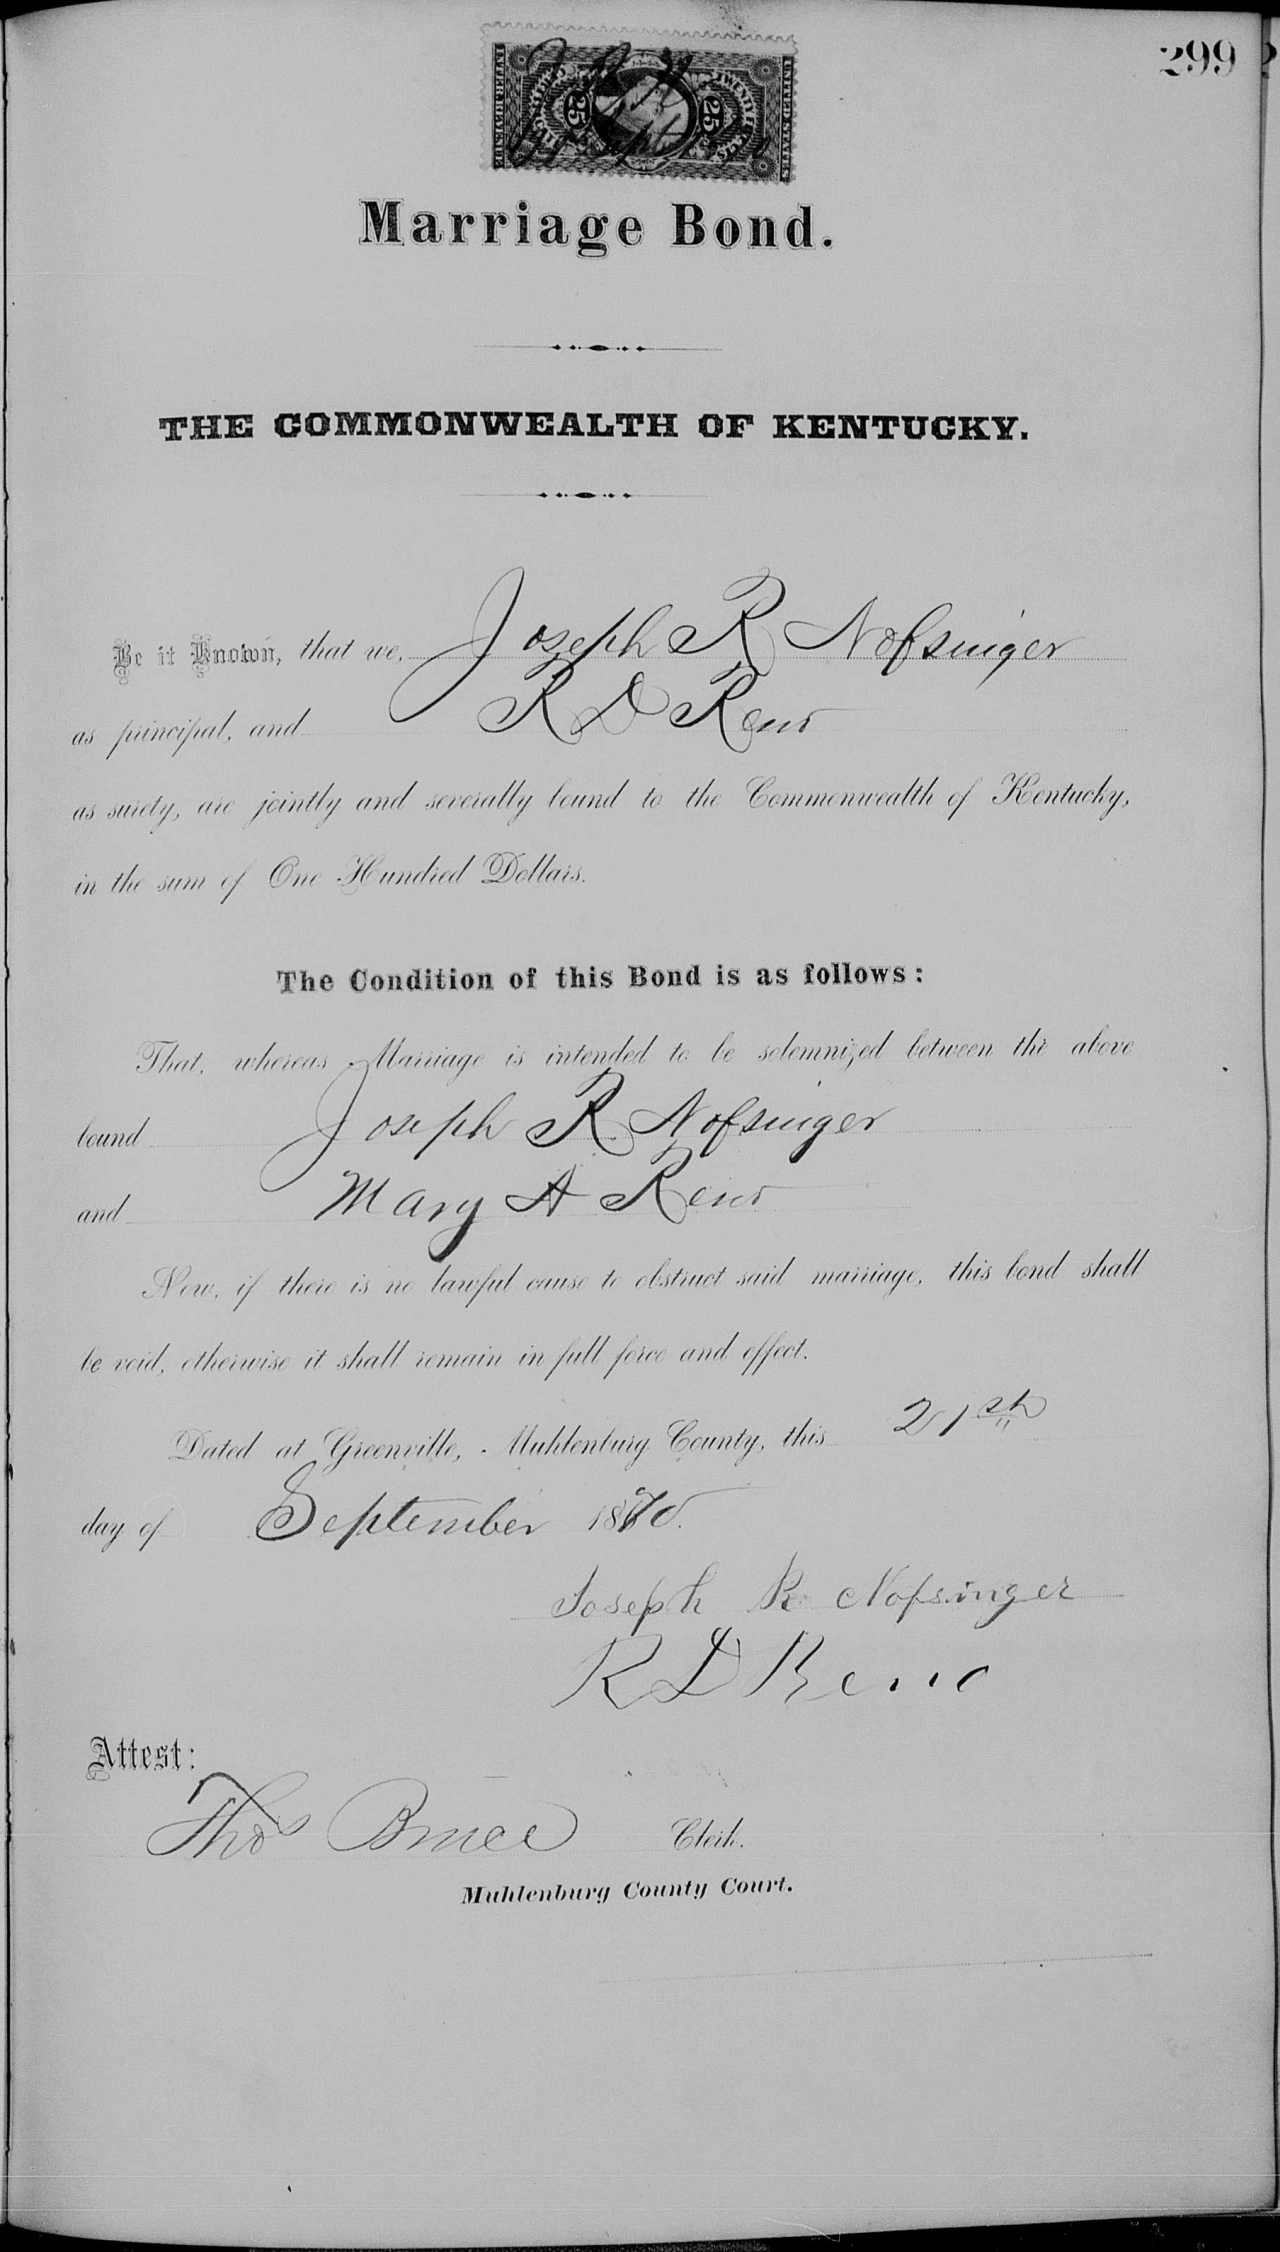 299
UNITED STATES
INTER. REVENUE
25
25
Marriage Bond.
THE COMMONWEALTH OF KENTUCKY.
Be it Known, that we, Joseph R Nofsinger
as principal, and R D Reno
as surety, are jointly and severally bound to the Commonwealth of Kentucky,
in the sum of One Hundred Dollars.
The Condition of this Bond is as follows:
That, whereas Marriage is intended to be solemnized between the above
bound Joseph R. Nofsinger
and Mary A Reno
Now, if there is no lawful cause to obstruct said marriage, this bond shall
be void, otherwise it shall remain in full force and effect.
Dated at Greenville, Muhlenburg County, this 21st
day of September 1870.
Joseph R Nofsinger
R D Reno
Attest:
Thos Bruce Clerk.
Muhlenburg County Court.